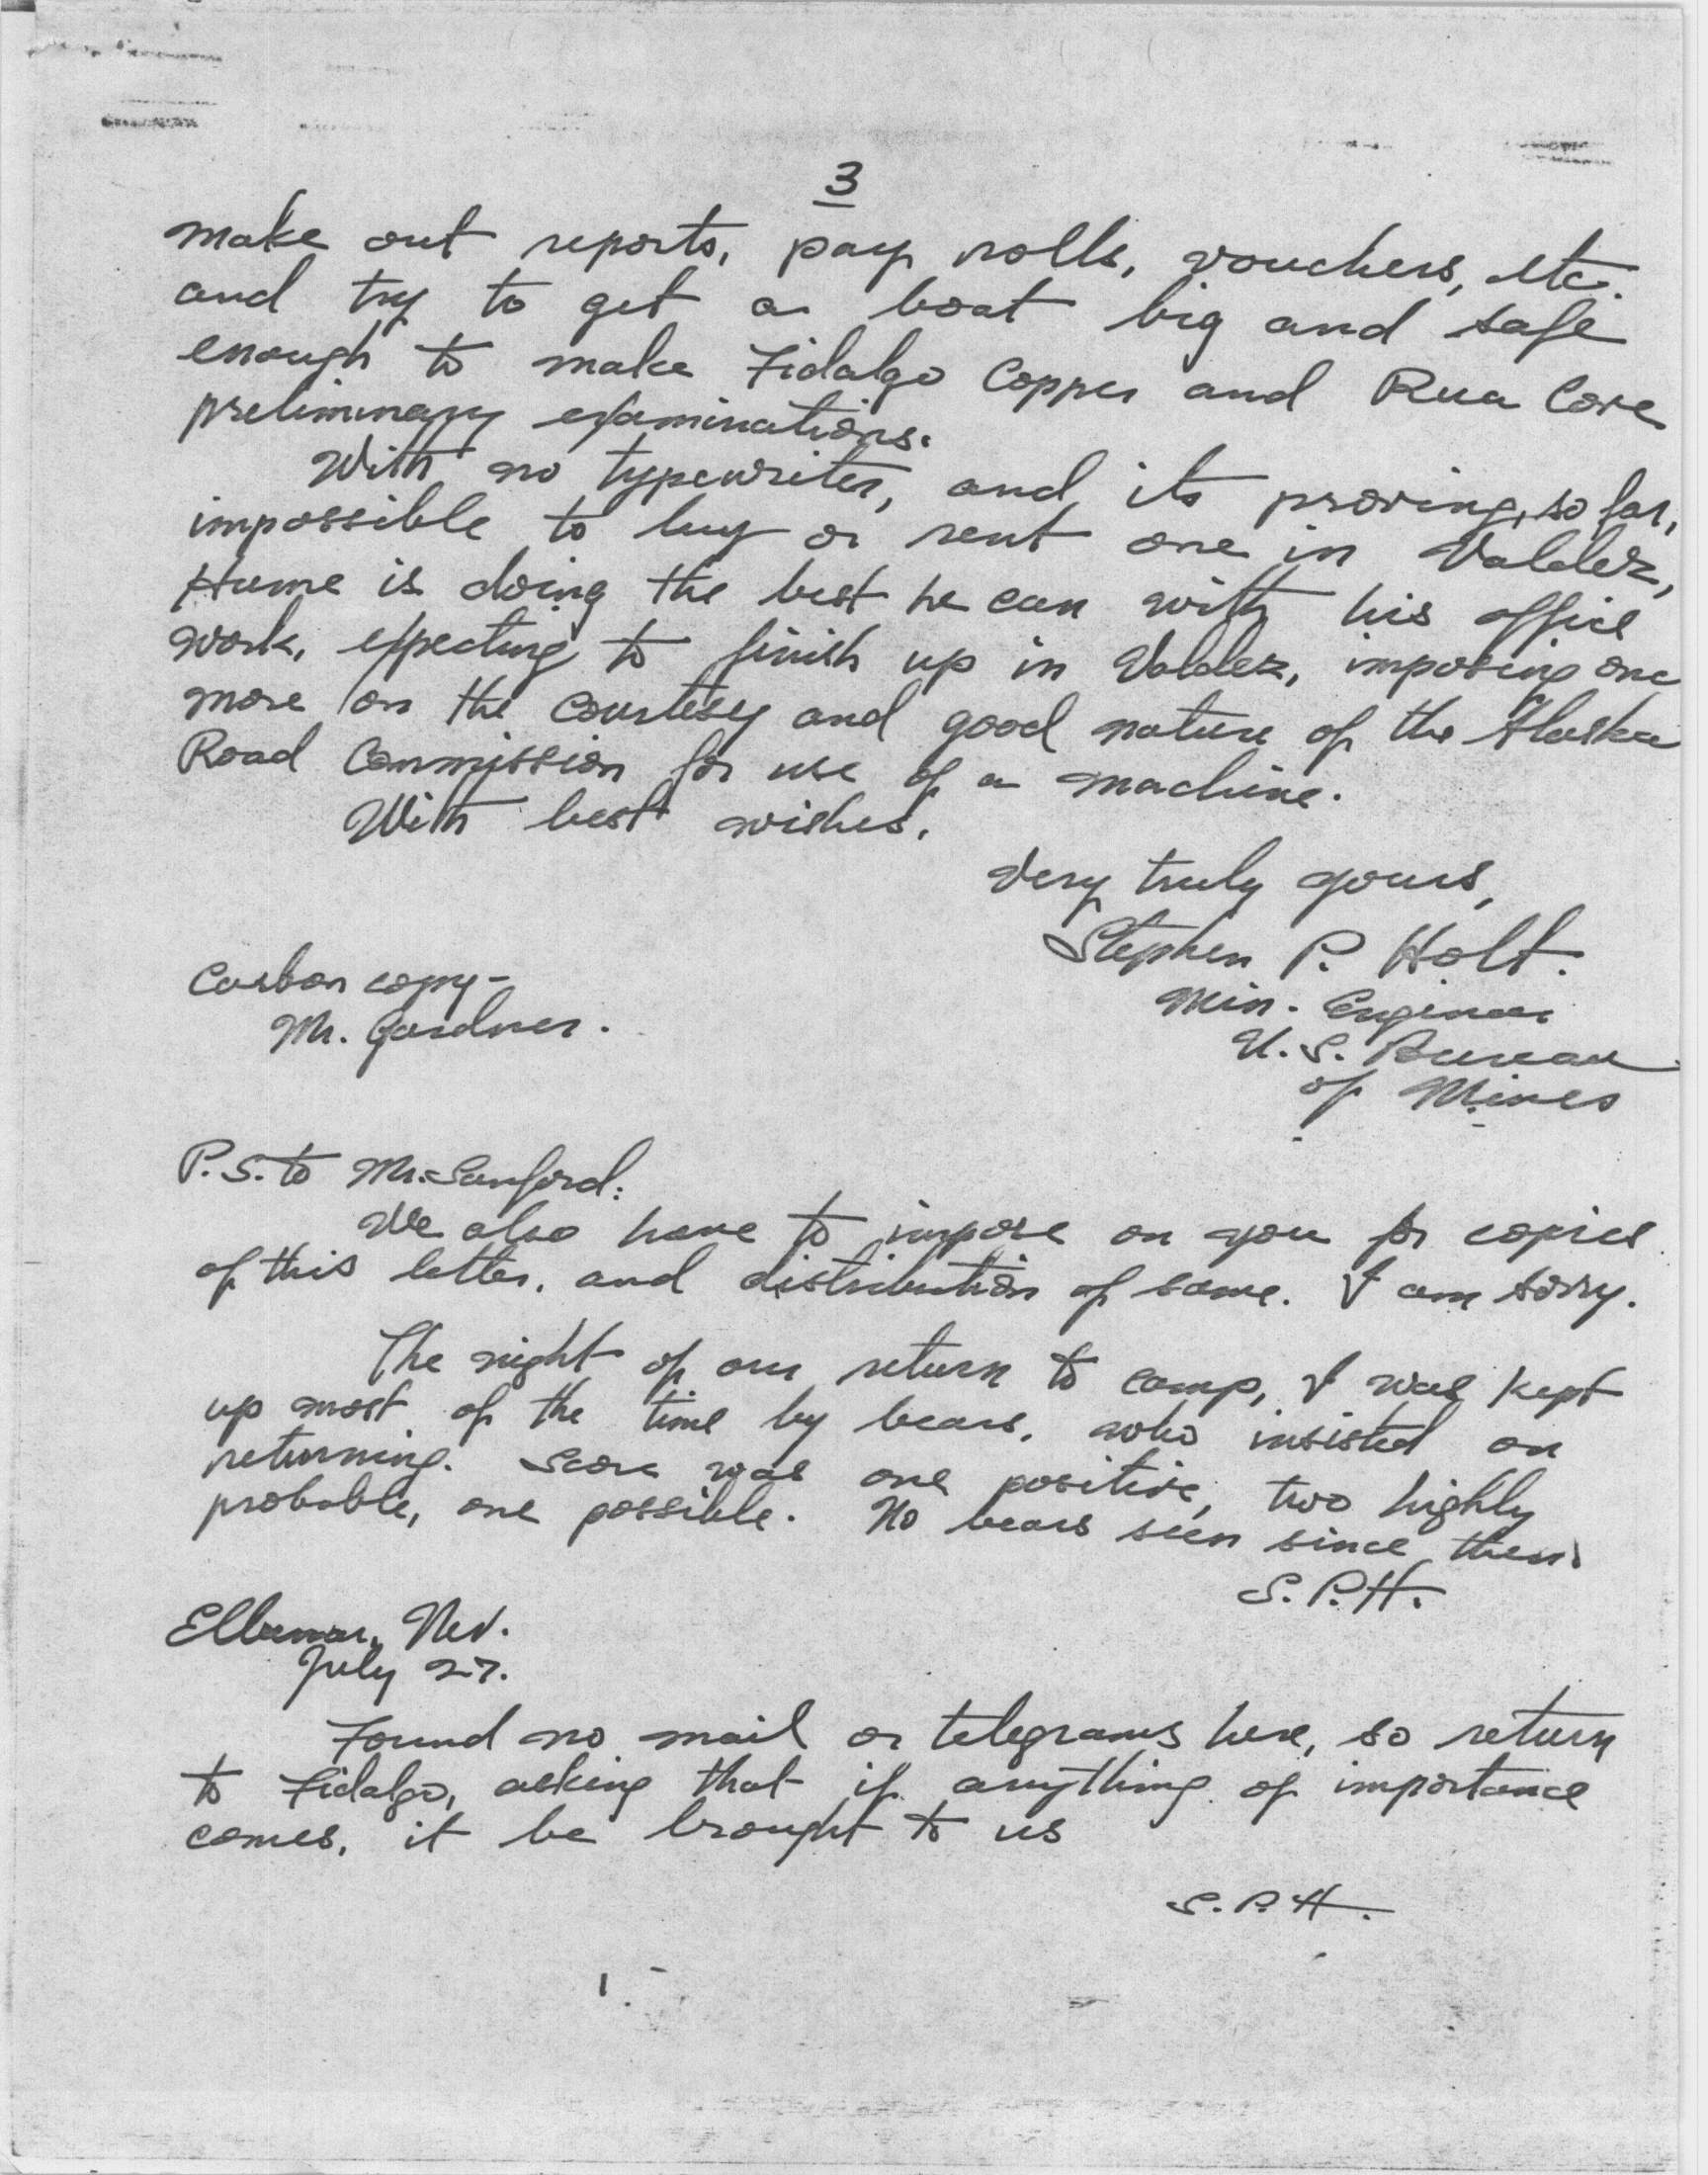 3
make out reports, pay rolls, vouchers, etc.
and try to get a boat big and safe
enough to make Fidalgo Copper and Rua Cove
preliminary examinations.
With no typewriter, and its proving, so far,
impossible to buy or rent one in Valdez,
Hume is doing the best he can with his office
work, expecting to finish up in Valdez, imposing one
more on the courtesey and good nature of the Alaska
Road Commission for use of a machine.
With best wishes,
Very truly yours,
Stephen P. Holt.
Min. Engineer
U. S. Bureau
of Mines
Carbon copy-
Mr. Gardner.
P.S. to Mr. Sanford:
We also have to impose on you for copies
of this letter, and distribution of same. I am sorry.
The night of our return to camp, I was kept
up most of the time by bears, who insisted on
returning. Score was one positive, two highly
probable, one possible. No bears seen since then.
S. P. H.
July 27.
Found no mail or telegrams here, so return
to Fidalgo, asking that if anything of importance
comes, it be brought to us
S. P. H.